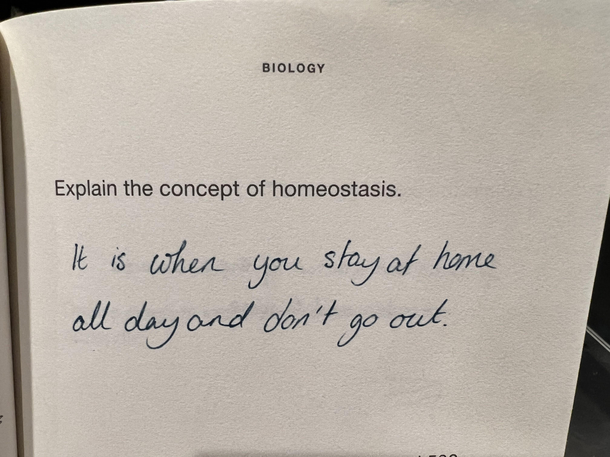 BIOLOGY
Explain the concept of homeostasis.
It is when you stay at home
all day and don't go out.